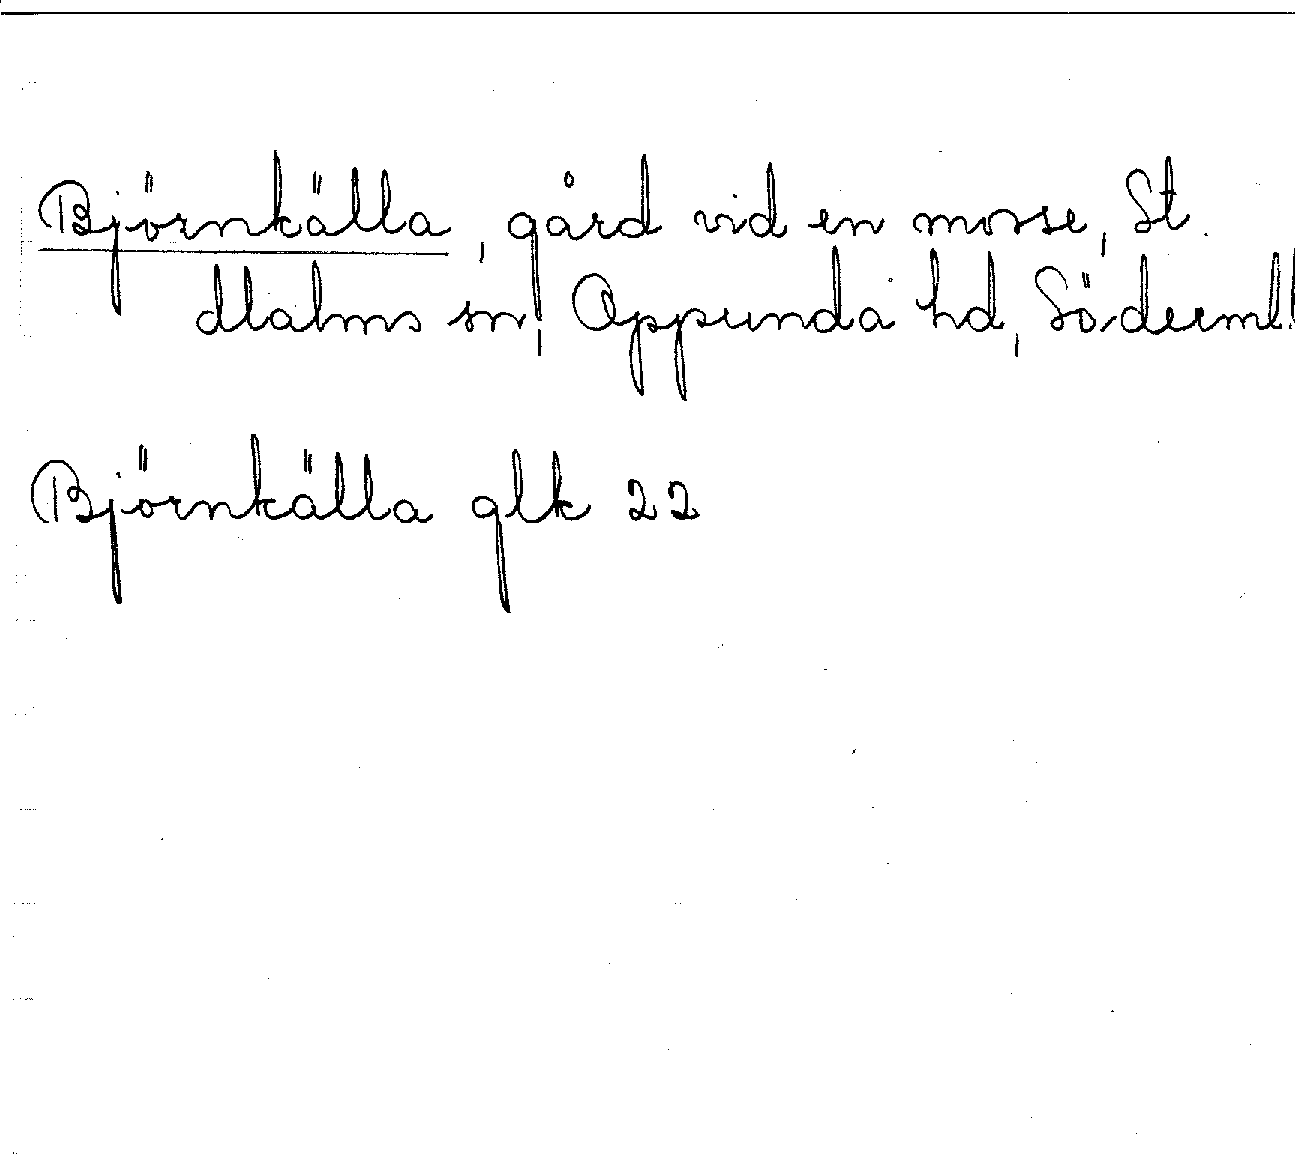 Björnkälla, gård vid en mosse, St.
Malms sn, Oppunda hd, Söderml.
Björnkälla glk 22